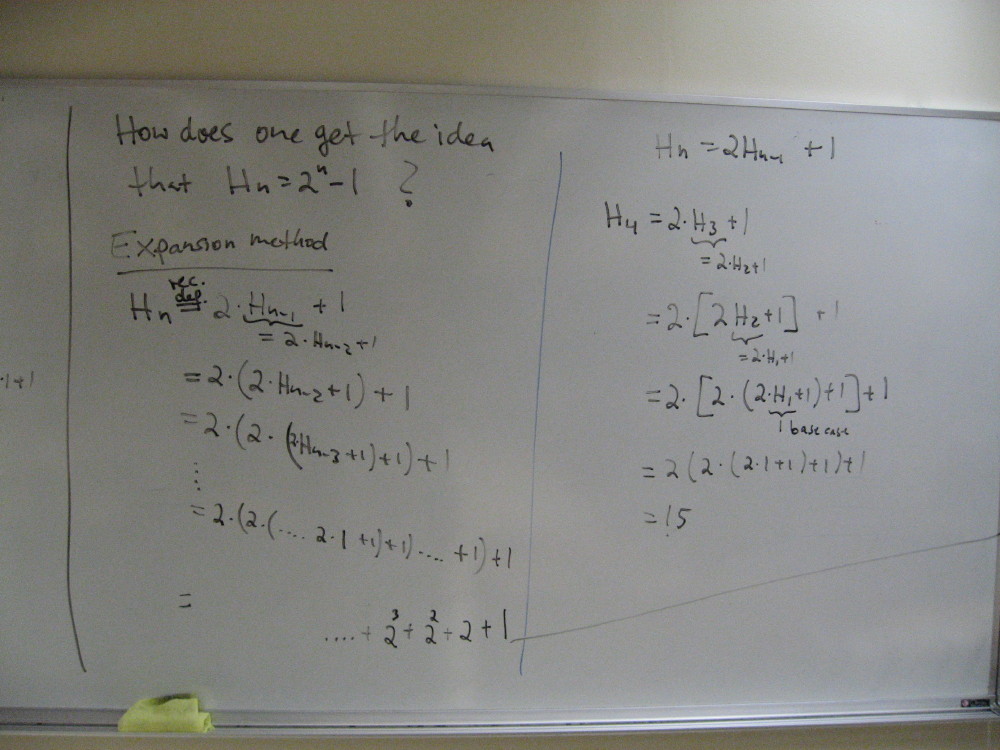 ·1+1
How does one get the idea
that Hn = 2ⁿ-1 ?
Expansion method
rec.
def.
Hn = 2·Hn-1 + 1
= 2·Hn-2+1
= 2·(2·Hn-2+1)+1
= 2·(2·(2·Hn-3+1)+1)+1
⋮
= 2·(2·(.... 2·1 +1)+1).... +1)+1
=
....+ 2³ + 2² + 2 + 1
Hn = 2Hn-1 + 1
H4 = 2·H3 + 1
= 2·H2+1
= 2·[2H2+1] + 1
= 2·H1+1
= 2·[2·(2·H1+1)+1]+1
1 base case
= 2(2·(2·1+1)+1)+1
= 15